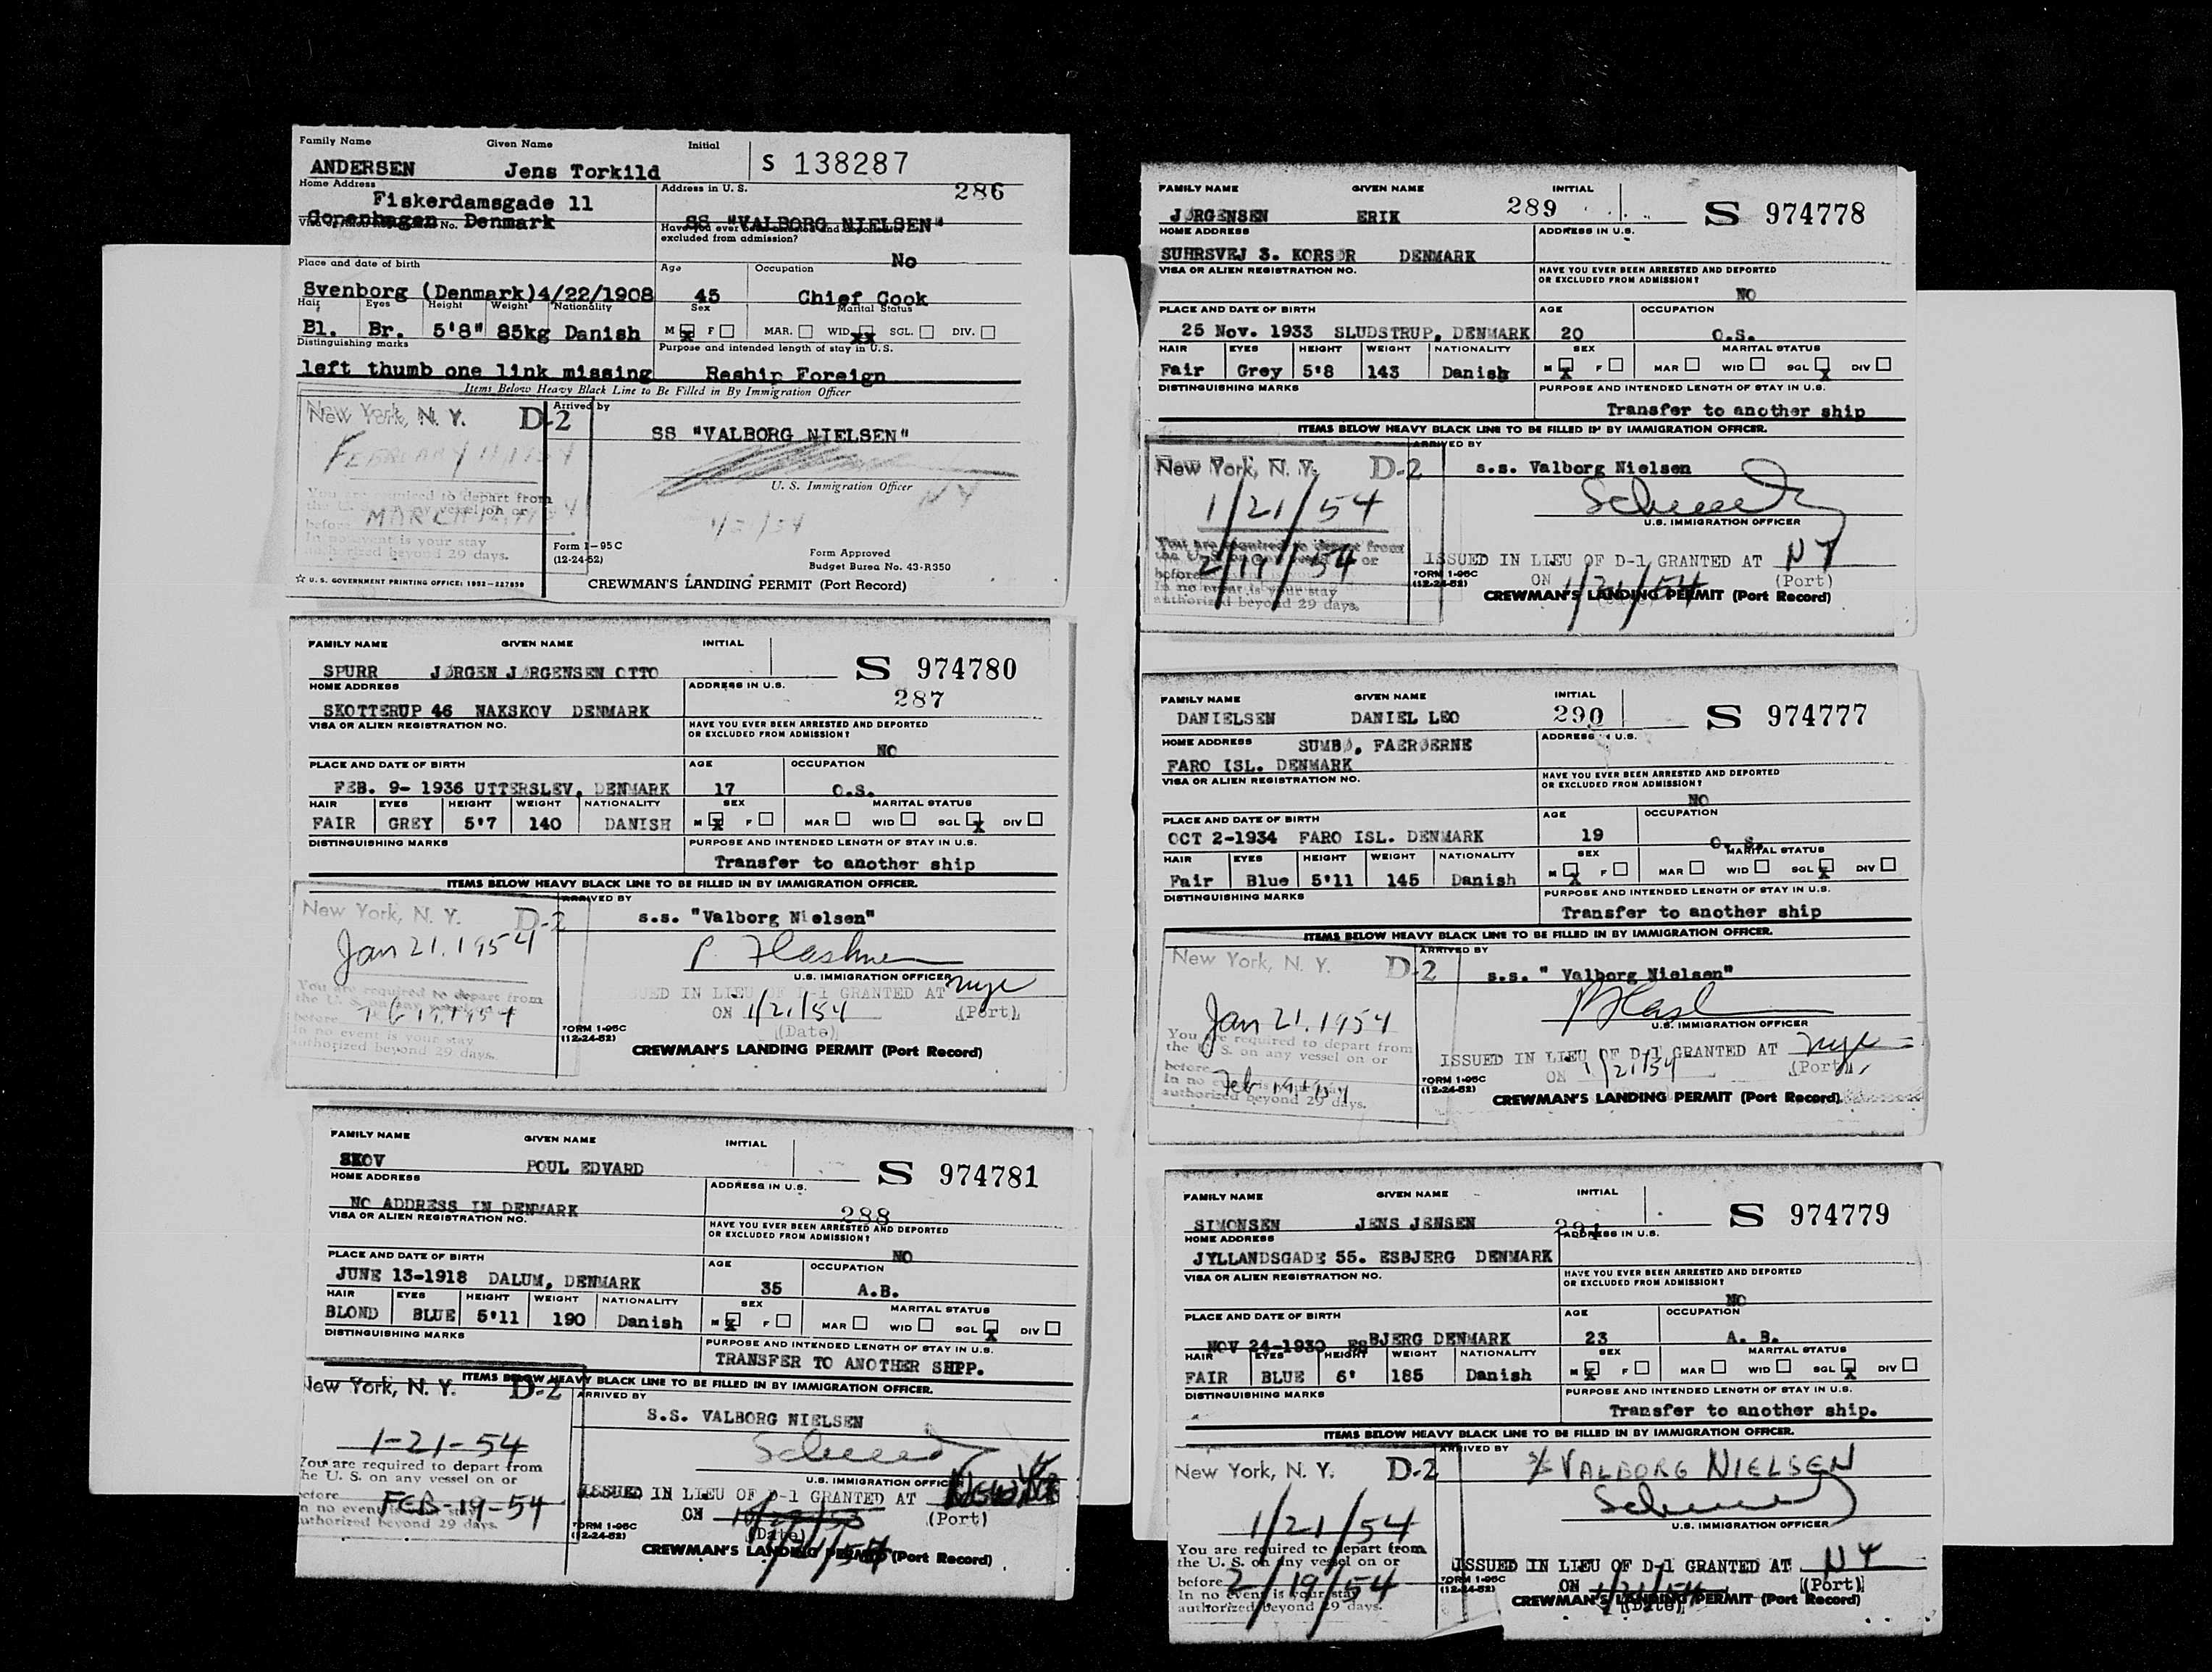 Family Name Given Name Initial
S 138287
ANDERSEN Jens Torkild
Home Address Address in U. S. 286
Fiskerdamsgade 11
Copenhagen, Denmark SS "VALBORG NIELSEN"
excluded from admission?
No
Place and date of birth Age Occupation
Svenborg (Denmark)4/22/1908 45 Chief Cook
Hair Eyes Height Weight Nationality Sex Marital Status
Bl. Br. 5'8" 85kg Danish M F MAR. WID. xx SGL. DIV.
Distinguishing marks Purpose and intended length of stay in U.S.
left thumb one link missing Reship Foreign
Items Below Heavy Black Line to Be Filled in By Immigration Officer
New York, N. Y. D-2 Arrived by
SS "VALBORG NIELSEN"
FEBRUARY
U. S. Immigration Officer
NY
You are required to depart from
the U. S. on any vessel on or
before MARCH
In no event is your stay
authorized beyond 29 days.
Form I-95C
(12-24-52)
Form Approved
Budget Burea No. 43-R350
U. S. GOVERNMENT PRINTING OFFICE: 1952-227859
CREWMAN'S LANDING PERMIT (Port Record)
FAMILY NAME GIVEN NAME INITIAL
SPURR JØRGEN JØRGENSEN OTTO S 974780
HOME ADDRESS ADDRESS IN U.S. 287
SKOTTERUP 46 NAKSKOV DENMARK
VISA OR ALIEN REGISTRATION NO. HAVE YOU EVER BEEN ARRESTED AND DEPORTED
OR EXCLUDED FROM ADMISSION?
NO
PLACE AND DATE OF BIRTH AGE OCCUPATION
FEB. 9- 1936 UTTERSLEV, DENMARK 17 O.S.
HAIR EYES HEIGHT WEIGHT NATIONALITY SEX MARITAL STATUS
FAIR GREY 5'7 140 DANISH M X F MAR WID SGL X DIV
DISTINGUISHING MARKS PURPOSE AND INTENDED LENGTH OF STAY IN U.S.
Transfer to another ship
ITEMS BELOW HEAVY BLACK LINE TO BE FILLED IN BY IMMIGRATION OFFICER.
New York, N. Y. D-2 ARRIVED BY
s.s. "Valborg Nielsen"
Jan 21. 1954
U.S. IMMIGRATION OFFICER
You are required to depart from
the U. S. on any vessel on or
before
In no event is your stay
authorized beyond 29 days.
ISSUED IN LIEU OF D-1 GRANTED AT nyc
ON 1/21/54 (Port)
(Date)
FORM I-95C
(12-24-52)
CREWMAN'S LANDING PERMIT (Port Record)
FAMILY NAME GIVEN NAME INITIAL
SKOV POUL EDVARD S 974781
HOME ADDRESS ADDRESS IN U.S.
NO ADDRESS IN DENMARK 288
VISA OR ALIEN REGISTRATION NO. HAVE YOU EVER BEEN ARRESTED AND DEPORTED
OR EXCLUDED FROM ADMISSION?
NO
PLACE AND DATE OF BIRTH AGE OCCUPATION
JUNE 13-1918 DALUM, DENMARK 35 A.B.
HAIR EYES HEIGHT WEIGHT NATIONALITY SEX MARITAL STATUS
BLOND BLUE 5'11 190 Danish M X F MAR WID SGL X DIV
DISTINGUISHING MARKS PURPOSE AND INTENDED LENGTH OF STAY IN U.S.
TRANSFER TO ANOTHER SHPP.
ITEMS BELOW HEAVY BLACK LINE TO BE FILLED IN BY IMMIGRATION OFFICER.
New York, N. Y. D-2 ARRIVED BY
S.S. VALBORG NIELSEN
1-21-54
U.S. IMMIGRATION OFFICER
You are required to depart from
the U. S. on any vessel on or
before FEB-19-54
In no event is your stay
authorized beyond 29 days.
ISSUED IN LIEU OF D-1 GRANTED AT
ON (Port)
(Date)
FORM I-95C
(12-24-52)
CREWMAN'S LANDING PERMIT (Port Record)
FAMILY NAME GIVEN NAME INITIAL
JØRGENSEN ERIK 289 S 974778
HOME ADDRESS ADDRESS IN U.S.
SUHRSVEJ 3. KORSØR DENMARK
VISA OR ALIEN REGISTRATION NO. HAVE YOU EVER BEEN ARRESTED AND DEPORTED
OR EXCLUDED FROM ADMISSION?
NO
PLACE AND DATE OF BIRTH AGE OCCUPATION
25 Nov. 1933 SLUDSTRUP, DENMARK 20 O.S.
HAIR EYES HEIGHT WEIGHT NATIONALITY SEX MARITAL STATUS
Fair Grey 5'8 143 Danish M X F MAR WID SGL X DIV
DISTINGUISHING MARKS PURPOSE AND INTENDED LENGTH OF STAY IN U.S.
Transfer to another ship
ITEMS BELOW HEAVY BLACK LINE TO BE FILLED IN BY IMMIGRATION OFFICER.
New York, N. Y. D-2 ARRIVED BY
s.s. Valborg Nielsen
1/21/54
U.S. IMMIGRATION OFFICER
You are required to depart from
the U. S. on any vessel on or
before 2/19/54
In no event is your stay
authorized beyond 29 days.
ISSUED IN LIEU OF D-1 GRANTED AT NY
ON 1/21/54 (Port)
FORM I-95C
(12-24-52)
CREWMAN'S LANDING PERMIT (Port Record)
FAMILY NAME GIVEN NAME INITIAL
DANIELSEN DANIEL LEO 290 S 974777
HOME ADDRESS ADDRESS IN U.S.
SUMBØ, FAERØERNE
FARO ISL. DENMARK
VISA OR ALIEN REGISTRATION NO. HAVE YOU EVER BEEN ARRESTED AND DEPORTED
OR EXCLUDED FROM ADMISSION?
NO
PLACE AND DATE OF BIRTH AGE OCCUPATION
OCT 2-1934 FARO ISL. DENMARK 19 O. S.
HAIR EYES HEIGHT WEIGHT NATIONALITY SEX MARITAL STATUS
Fair Blue 5'11 145 Danish M X F MAR WID SGL X DIV
DISTINGUISHING MARKS PURPOSE AND INTENDED LENGTH OF STAY IN U.S.
Transfer to another ship
ITEMS BELOW HEAVY BLACK LINE TO BE FILLED IN BY IMMIGRATION OFFICER.
New York, N. Y. D-2 ARRIVED BY
s.s. " Valborg Nielsen"
Jan 21. 1954
U.S. IMMIGRATION OFFICER
You are required to depart from
the U. S. on any vessel on or
before Feb 19 1954
In no event is your stay
authorized beyond 29 days.
ISSUED IN LIEU OF D-1 GRANTED AT nyc
ON 1/21/54 (Port)
FORM I-95C
(12-24-52)
CREWMAN'S LANDING PERMIT (Port Record)
FAMILY NAME GIVEN NAME INITIAL
SIMONSEN JENS JENSEN 291 S 974779
HOME ADDRESS ADDRESS IN U.S.
JYLLANDSGADE 55. ESBJERG DENMARK
VISA OR ALIEN REGISTRATION NO. HAVE YOU EVER BEEN ARRESTED AND DEPORTED
OR EXCLUDED FROM ADMISSION?
NO
PLACE AND DATE OF BIRTH AGE OCCUPATION
NOV 24-1930 ESBJERG DENMARK 23 A. B.
HAIR EYES HEIGHT WEIGHT NATIONALITY SEX MARITAL STATUS
FAIR BLUE 6' 185 Danish M X F MAR WID SGL X DIV
DISTINGUISHING MARKS PURPOSE AND INTENDED LENGTH OF STAY IN U.S.
Transfer to another ship.
ITEMS BELOW HEAVY BLACK LINE TO BE FILLED IN BY IMMIGRATION OFFICER.
New York, N. Y. D-2 ARRIVED BY
S/S VALBORG NIELSEN
1/21/54
U.S. IMMIGRATION OFFICER
You are required to depart from
the U. S. on any vessel on or
before 2/19/54
In no event is your stay
authorized beyond 29 days.
ISSUED IN LIEU OF D-1 GRANTED AT NY
ON 1/21/54 (Port)
(Date)
FORM I-95C
(12-24-52)
CREWMAN'S LANDING PERMIT (Port Record)